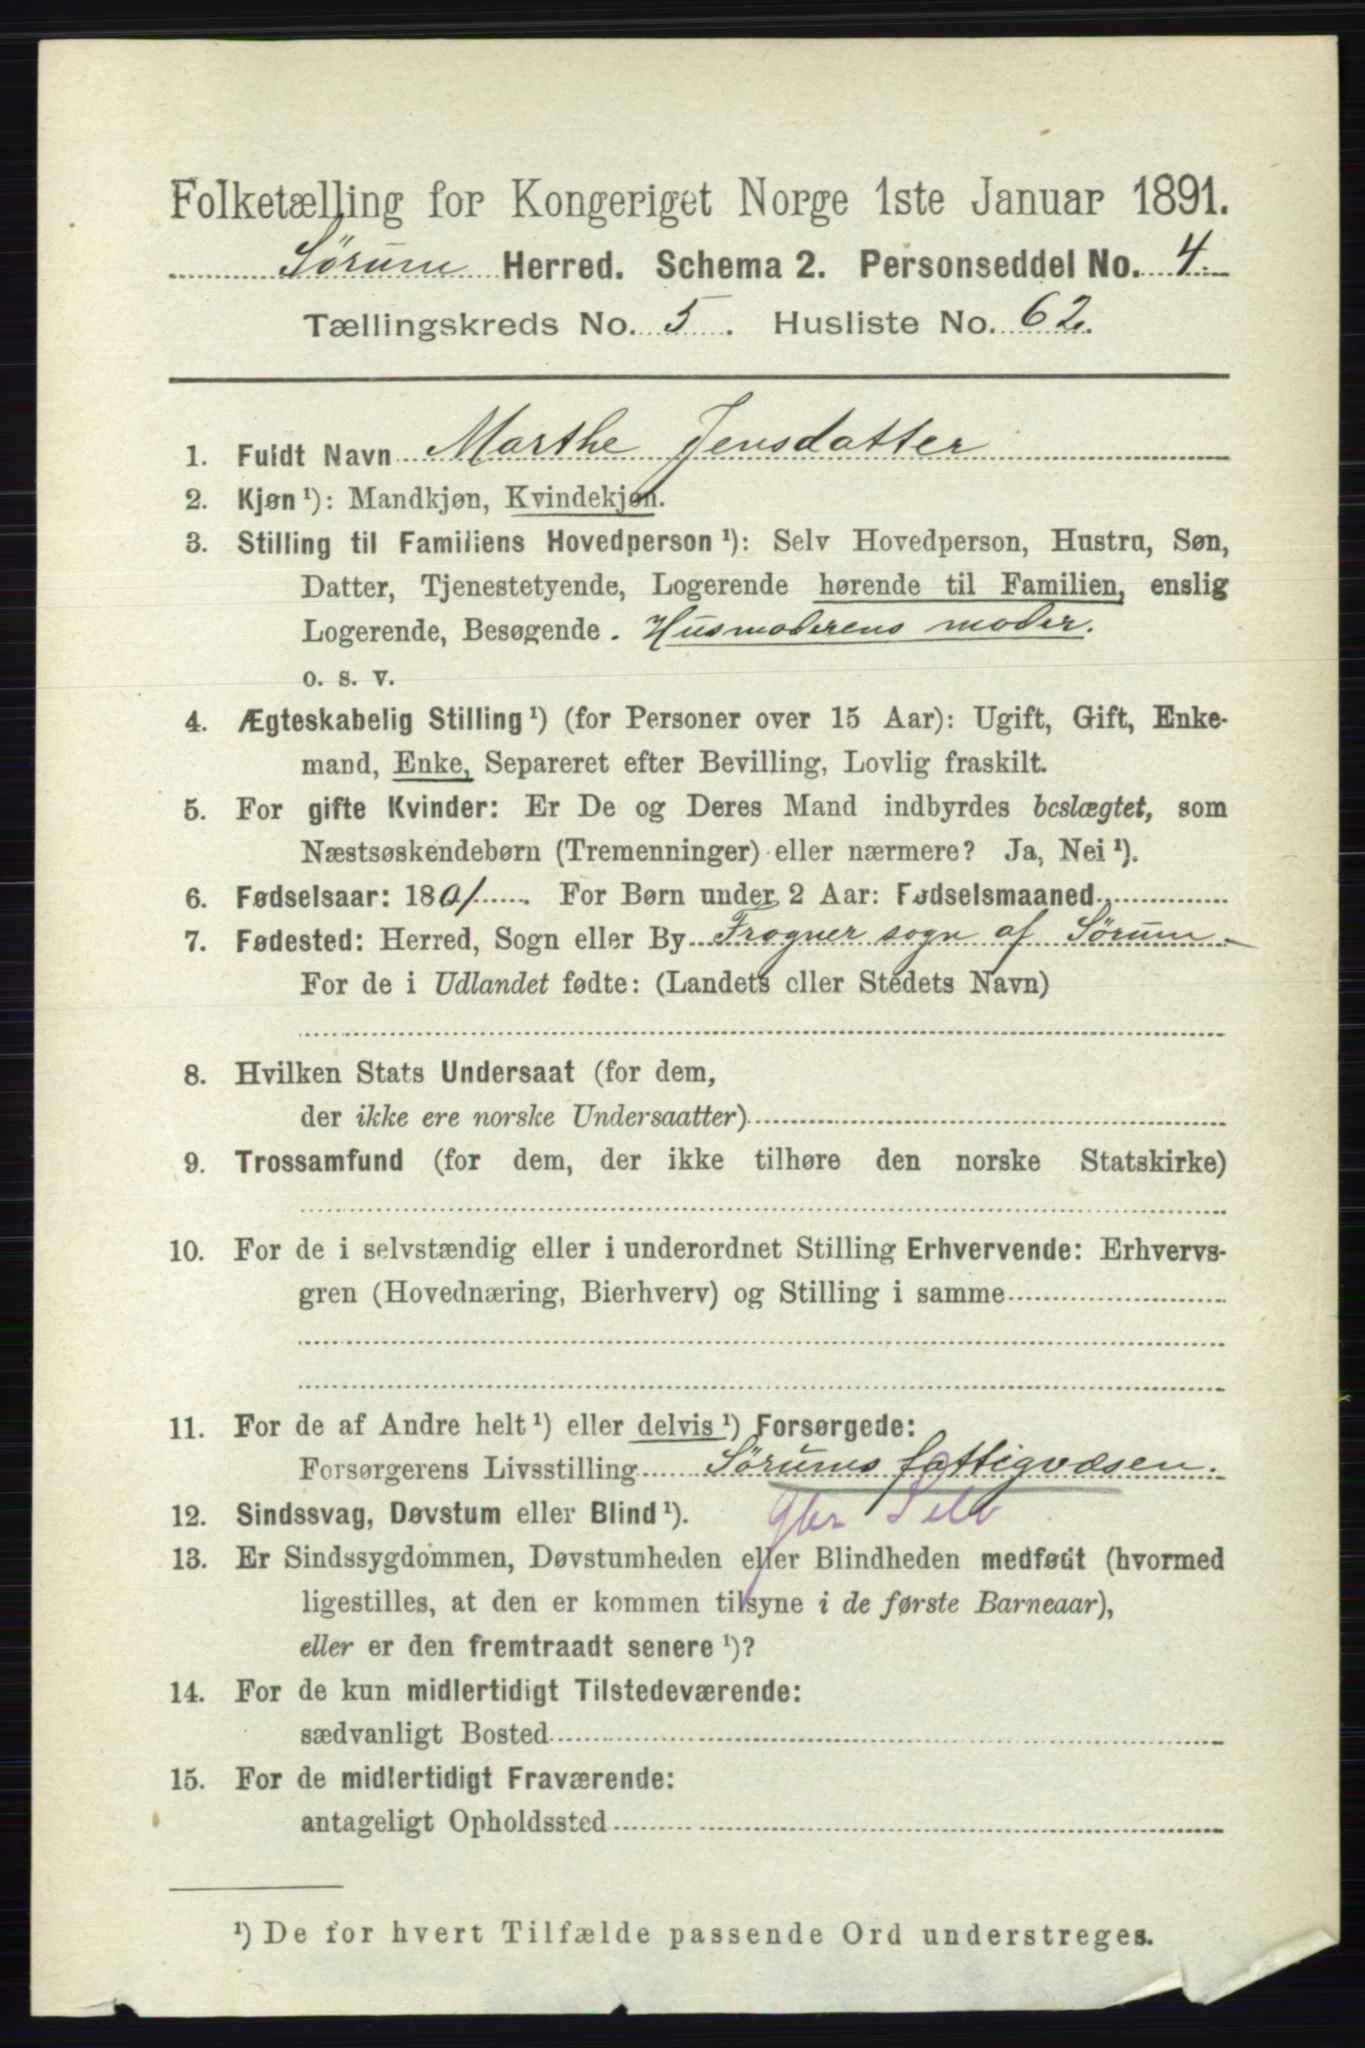 Folketælling for Kongeriget Norge 1ste Januar 1891.
Sørum Herred. Schema 2. Personseddel No. 4.
Tællingskreds No. 5. Husliste No. 62.
1. Fuldt Navn Marthe Jensdatter
2. Kjøn ¹): Mandkjøn, Kvindekjøn.
3. Stilling til Familiens Hovedperson ¹): Selv Hovedperson, Hustru, Søn,
Datter, Tjenestetyende, Logerende hørende til Familien, enslig
Logerende, Besøgende. Husmoderens moder.
o. s. v.
4. Ægteskabelig Stilling ¹) (for Personer over 15 Aar): Ugift, Gift, Enke-
mand, Enke, Separeret efter Bevilling, Lovlig fraskilt.
5. For gifte Kvinder: Er De og Deres Mand indbyrdes beslægtet, som
Næstsøskendebørn (Tremenninger) eller nærmere? Ja, Nei ¹).
6. Fødselsaar: 1801. For Børn under 2 Aar: Fødselsmaaned
7. Fødested: Herred, Sogn eller By Frogner sogn af Sørum
For de i Udlandet fødte: (Landets eller Stedets Navn)
8. Hvilken Stats Undersaat (for dem,
der ikke ere norske Undersaatter)
9. Trossamfund (for dem, der ikke tilhøre den norske Statskirke)
10. For de i selvstændig eller i underordnet Stilling Erhvervende: Erhvervs-
gren (Hovednæring, Bierhverv) og Stilling i samme
11. For de af Andre helt ¹) eller delvis ¹) Forsørgede:
Forsørgerens Livsstilling Sørums fattigvæsen.
12. Sindssvag, Døvstum eller Blind ¹).
13. Er Sindssygdommen, Døvstumheden eller Blindheden medfødt (hvormed
ligestilles, at den er kommen tilsyne i de første Barneaar),
eller er den fremtraadt senere ¹)?
14. For de kun midlertidigt Tilstedeværende:
sædvanligt Bosted
15. For de midlertidigt Fraværende:
antageligt Opholdssted
¹) De for hvert Tilfælde passende Ord understreges.